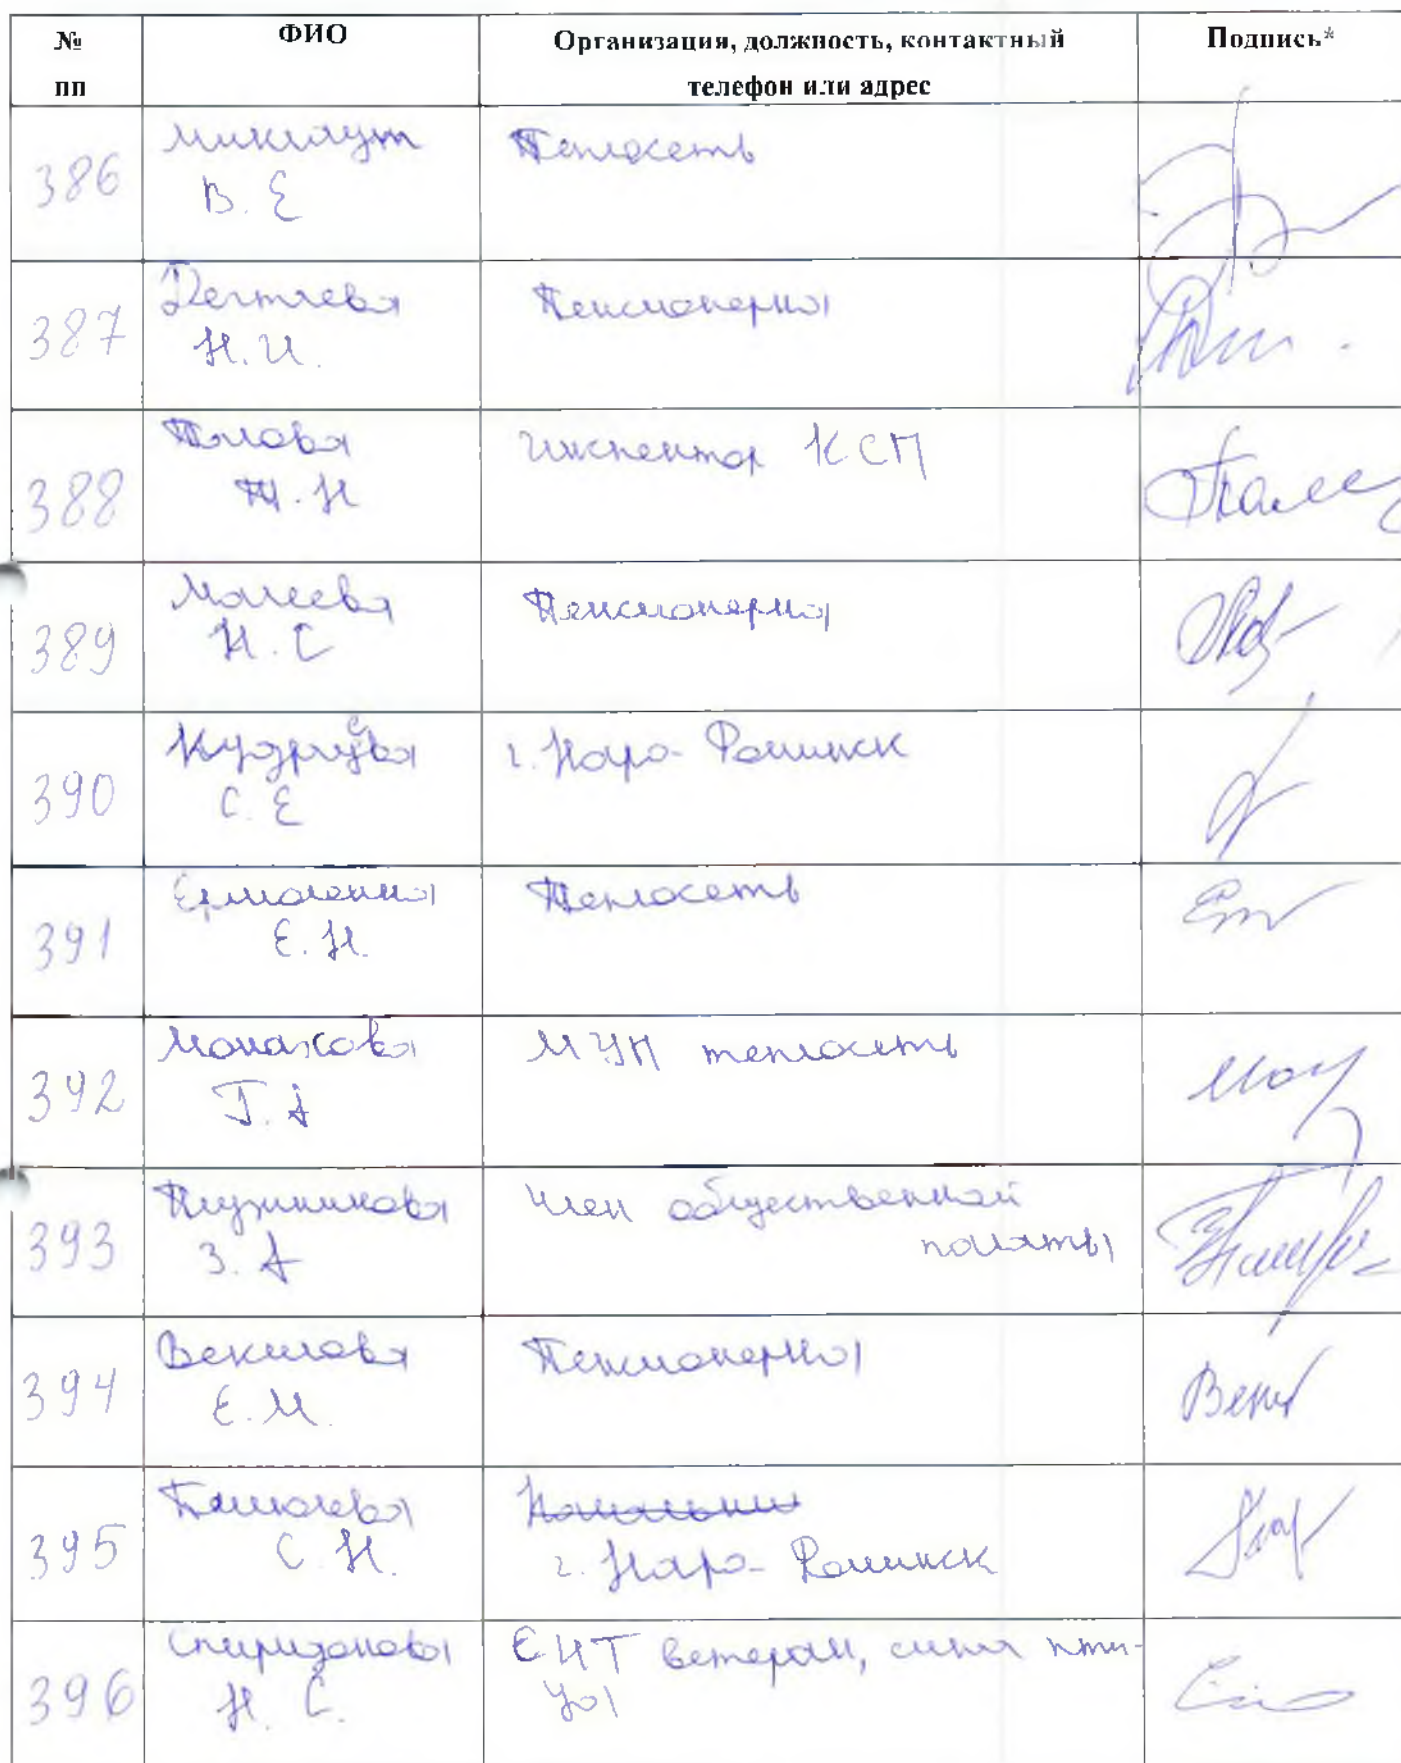 № пп ФИО Организация, должность, контактный телефон или адрес Подпись*
386 Микилут Теплосеть
В. Е
387 Дегтяева Пенсионерка
Н. И.
388 Палова Инспектор КСП
Т. Н
389 Малеева Пенсионерка
Н. С
390 Кудрцева г. Наро-Фоминск
С. Е
391 Ермоленка Теплосеть
Е. Н.
392 Монахова МУП теплосеть
Г. А
393 Плужникова Член общественной
З. А палаты
394 Векилова Пенсионерка
Е. М.
395
С. Н. г. Наро-Фоминск
396 Спиридонова ЕНТ ветеран, синя пти-
Н. С. ца